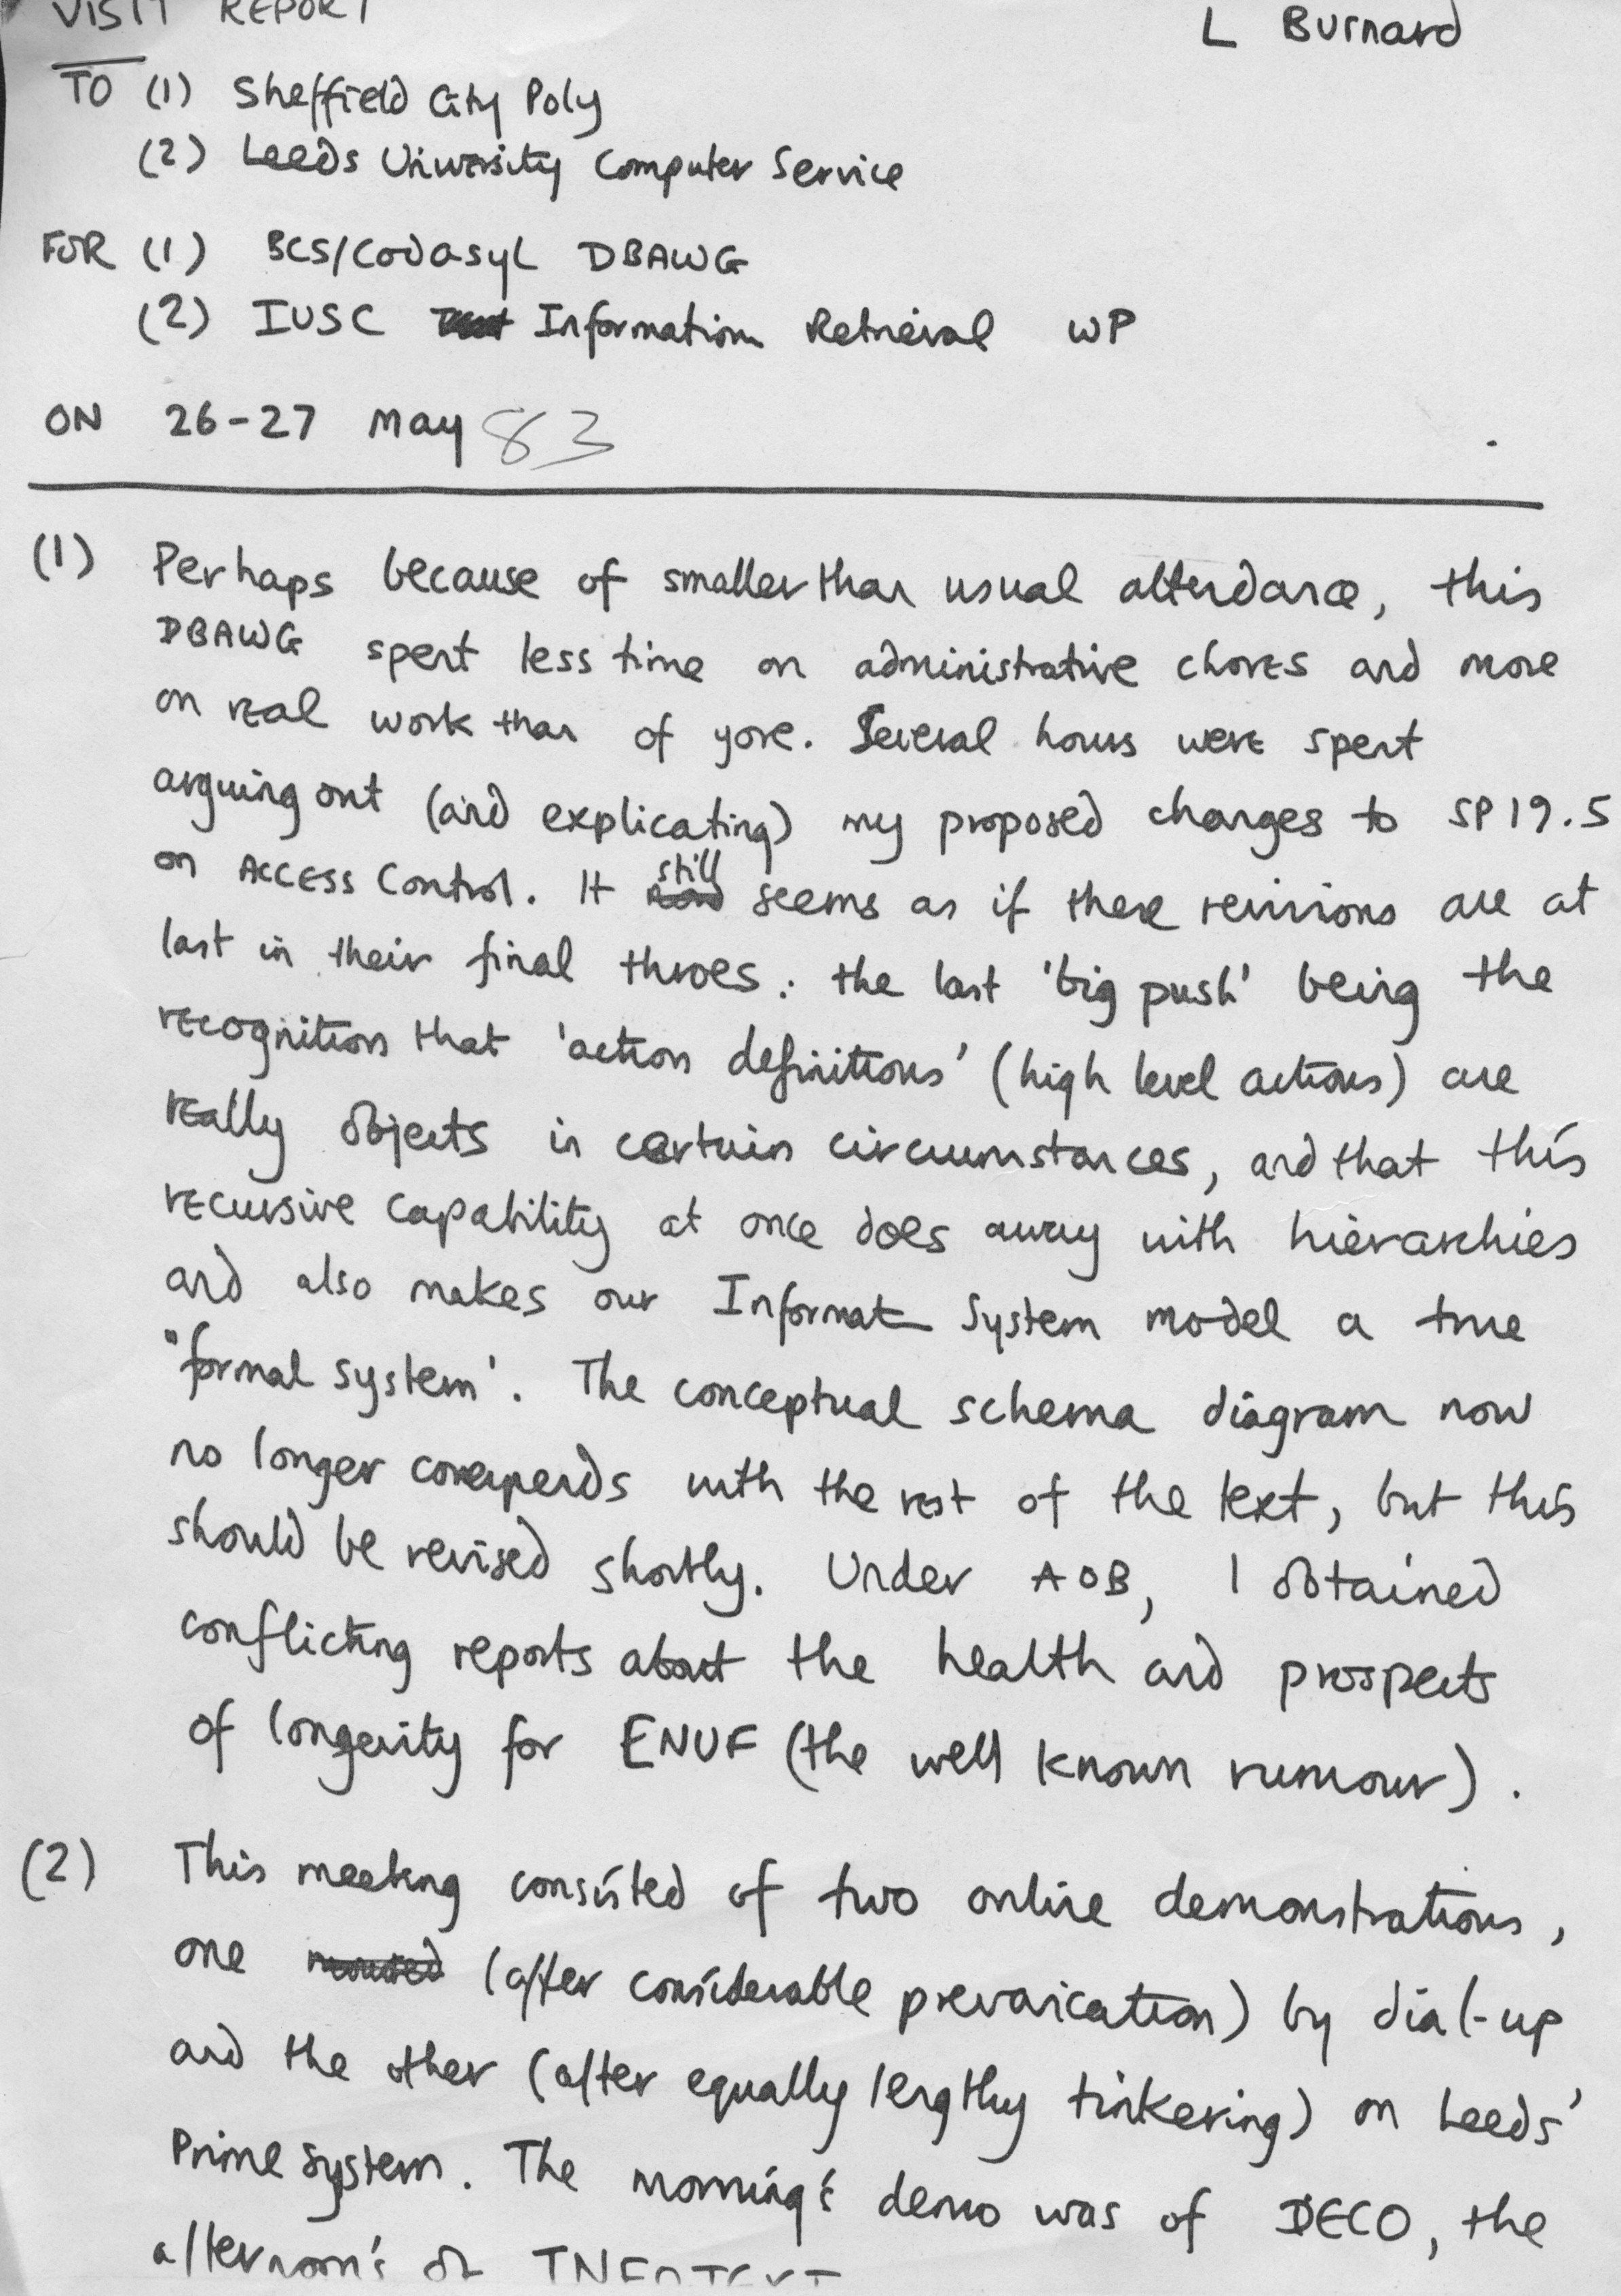 VISIT REPORT
L Burnard
TO (1) Sheffield City Poly
(2) Leeds University Computer Service
FOR (1) BCS/Codasyl DBAWG
(2) IUSC Information Retrieval WP
ON 26-27 May 83
(1) Perhaps because of smaller than usual attendance, this
DBAWG spent less time on administrative chores and more
on real work than of yore. Several hours were spent
arguing out (and explicating) my proposed changes to SP19.5
on Access Control. It still seems as if these revisions are at
last in their final throes: the last 'big push' being the
recognition that 'action definitions' (high level actions) are
really objects in certain circumstances, and that this
recursive capability at once does away with hierarchies
and also makes our Informat System model a true
'formal system'. The conceptual schema diagram now
no longer corresponds with the rest of the text, but this
should be revised shortly. Under AOB, I obtained
conflicting reports about the health and prospects
of longevity for ENUF (the well known rumour).
(2) This meeting consisted of two online demonstrations,
one (after considerable prevarication) by dial-up
and the other (after equally lengthy tinkering) on Leeds'
Prime System. The morning's demo was of DECO, the
afternoon's of INFOTEXT